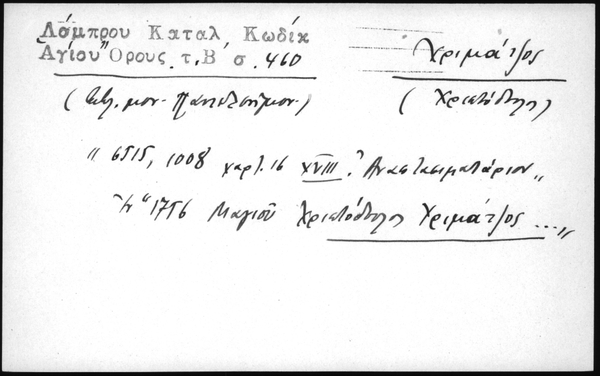 Λάμπρου Καταλ. Κωδίκ
Αγίου Όρους τ. Β΄ σ. 460
Χριμάτζος
(Βιβ. μον. Παντελεήμον.)
(Χριστόδουλος)
" 6515, 1008 χαρτ. 16 XVIII. "Αναστασιματάριον"
"1756 Μαγιοῦ Χριστόδουλος Χριμάτζος ..."